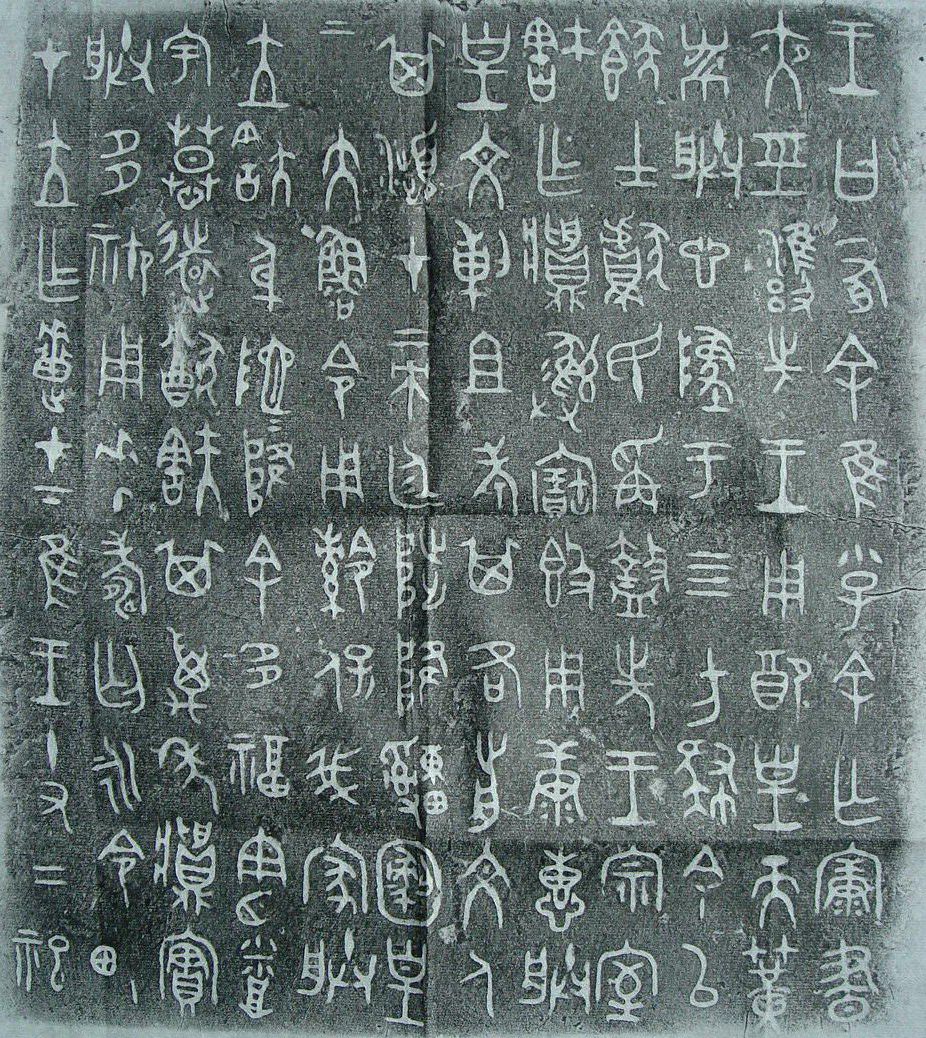 王曰有余隹小子余亡康晝
夜巠雝先王用配皇天簧
黹朕心墜于四方肄余以
士獻民爯盩先王宗室
㝬乍彝寶簋用康惠朕
皇文剌且考其各前文人
其瀕才帝廷陟降皇
帝大魯令用保我家朕
立㝬身阤=降余多福憲烝
宇慕遠猷㝬其萬年實
朕多禦用壽匄永令畯
才立乍疐才下隹王十又二祀